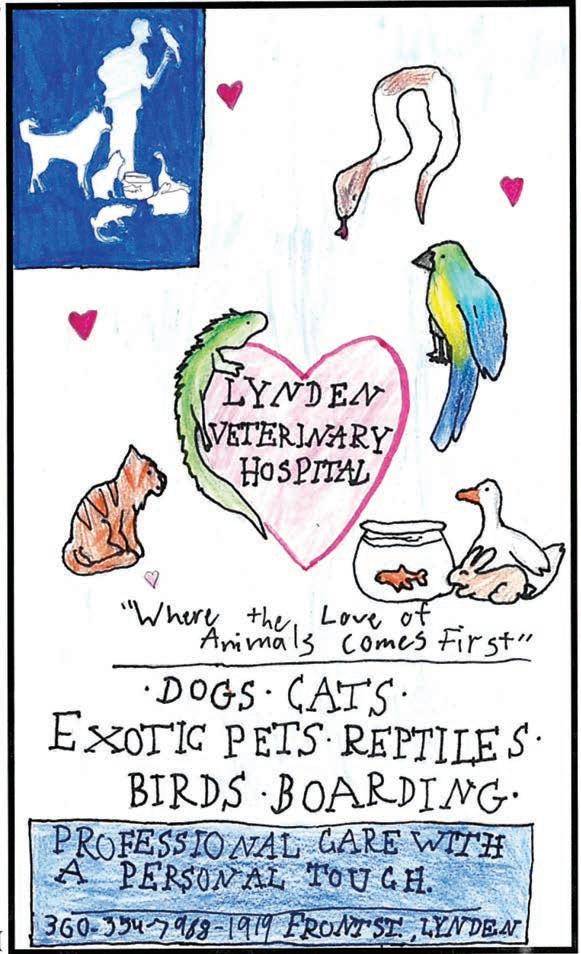 LYNDEN
VETERINARY
HOSPITAL
"Where the Love of
Animals Comes First"
·DOGS· CATS·
EXOTIC PETS· REPTILES·
BIRDS ·BOARDING·
PROFESSIONAL CARE WITH
A PERSONAL TOUCH.
360-354-7988-1919 FRONT ST., LYNDEN